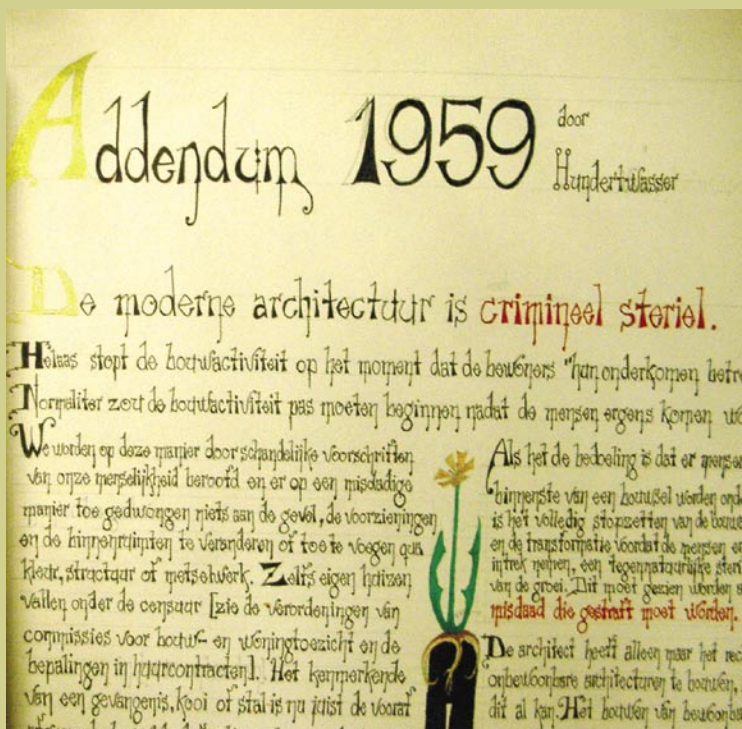 Addendum 1959
door
Hundertwasser
De moderne architectuur is crimineel steriel.
Helaas stopt de bouwactiviteit op het moment dat de bewoners "hun onderkomen betre
Normaliter zou de bouwactiviteit pas moeten beginnen nadat de mensen ergens komen wo
We worden op deze manier door schandelijke voorschriften
van onze menselijkheid beroofd en er op een misdadige
manier toe gedwongen niets aan de gevel, de voorzieningen
en de binnenruimten te veranderen of toe te voegen qua
kleur, structuur of metselwerk. Zelfs eigen huizen
vallen onder de censuur [zie de verordeningen van
commissies voor bouw- en woningtoezicht en de
bepalingen in huurcontracten]. Het kenmerkende
van een gevangenis, kooi of stal is nu juist de vooraf
Als het de bedoeling is dat er mensen
binnenste van een bouwsel worden onde
is het volledig stopzetten van de bouwa
en de transformatie voordat de mensen er
intrek nemen, een tegennatuurlijke steri
van de groei. Dit moet gezien worden a
misdaad die gestraft moet worden.
De architect heeft alleen maar het rec
onbewoonbare architecturen te bouwen,
dit al kan. Het bouwen van bewoonba